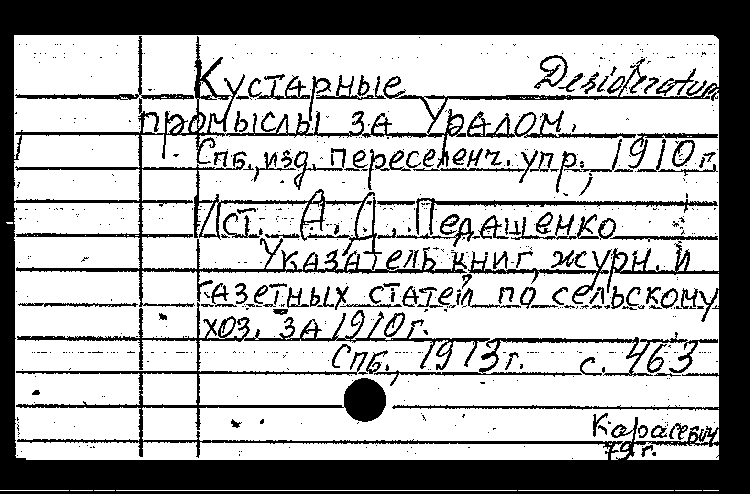 Desideratum
Кустарные
промыслы за Уралом.
Спб., изд. переселенч. упр., 1910 г.
Ист. А. Д. Педашенко
Указатель книг, журн. и
газетных статей по сельскому
хоз. за 1910 г.
Спб., 1913 г. с. 463
Карасевич
79 г.